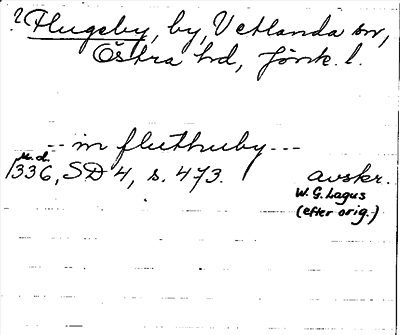 ?Flugeby, by, Vetlanda sn,
Östra hd, Jönk. l.
-- in fluthuby ---
u.d.
1336, SD 4, s. 473. avskr.
W. G. Lagus
(efter orig.)